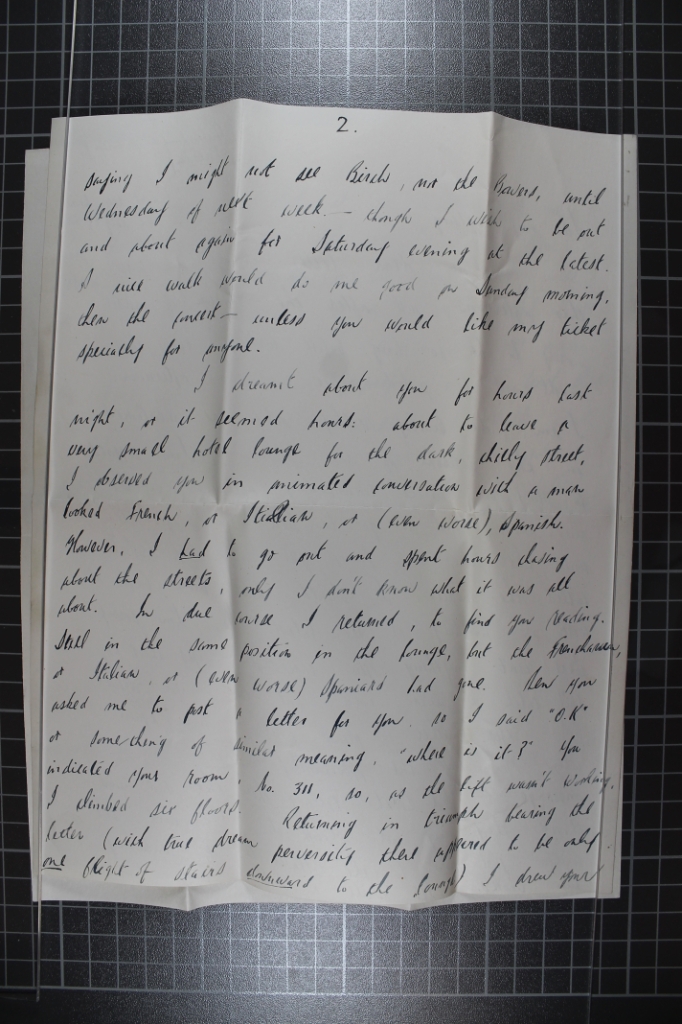 2.
saying I might not see Birch, nor the Bowers, until
Wednesday of next week — though I wish to be out
and about again for Saturday evening at the latest.
A nice walk would do me good on Sunday morning,
then the concert — unless you would like my ticket
specially for anyone.
I dreamt about you for hours last
night, or it seemed hours: about to leave a
very small hotel lounge for the dark, chilly street,
I observed you in animated conversation with a man
looked French, or Italian, or (even worse), Spanish.
However, I had to go out and spent hours
about the streets, only I don't know what it was all
about. In due course I returned, to find you reading.
Still in the same position in the lounge, but the Frenchman,
or Italian, or (even worse) Spaniard had gone. Then you
asked me to post a letter for you so I said "O.K"
or something of similar meaning, "where is it?" You
indicated your room, No. 311, so, as the lift wasn't working,
I climbed six floors. Returning in triumph bearing the
letter (with true dream perversity there appeared to be only
one flight of stairs downward to the lounge) I drew your